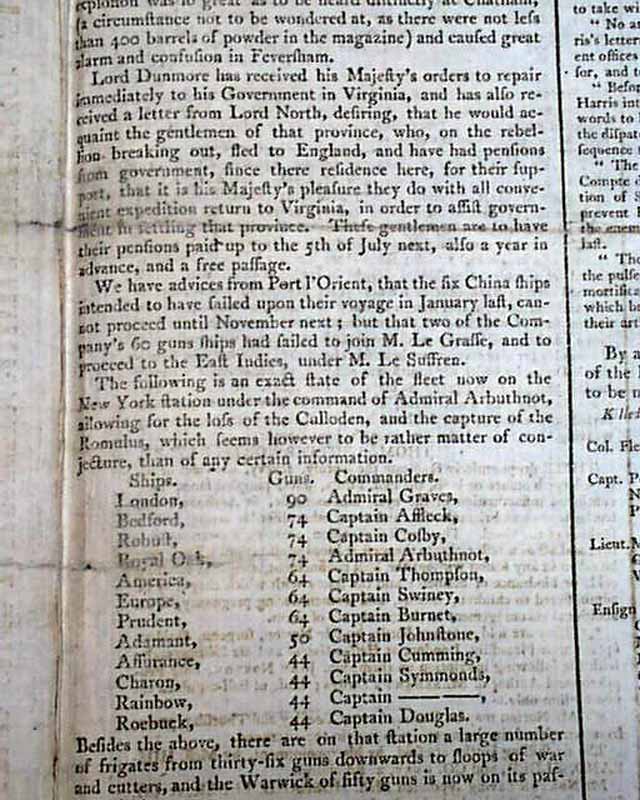 explosion was so great as to be heard distinctly at Chatham,
(a circumſtance not to be wondered at, as there were not leſs
than 400 barrels of powder in the magazine) and cauſed great
alarm and confuſion in Feverſham.
Lord Dunmore has received his Majeſty's orders to repair
immediately to his Government in Virginia, and has alſo re-
ceived a letter from Lord North, deſiring, that he would ac-
quaint the gentlemen of that province, who, on the rebel-
lion breaking out, fled to England, and have had penſions
from government, ſince there reſidence here, for their ſup-
port, that it is his Majeſty's pleaſure they do with all conve-
nient expedition return to Virginia, in order to aſſiſt govern-
ment in ſettling that province. Theſe gentlemen are to have
their penſions paid up to the 5th of July next, alſo a year in
advance, and a free paſſage.
We have advices from Port l'Orient, that the ſix China ſhips
intended to have ſailed upon their voyage in January laſt, can-
not proceed until November next; but that two of the Com-
pany's 60 guns ſhips had ſailed to join M. Le Graſſe, and to
proceed to the Eaſt Indies, under M. Le Suffren.
The following is an exact ſtate of the fleet now on the
New York ſtation under the command of Admiral Arbuthnot,
allowing for the loſs of the Culloden, and the capture of the
Romulus, which ſeems however to be rather matter of con-
jecture, than of any certain information.
Ships. Guns. Commanders.
London, 90 Admiral Graves,
Bedford, 74 Captain Affleck,
Robuſt, 74 Captain Coſby,
Royal Oak, 74 Admiral Arbuthnot,
America, 64 Captain Thompſon,
Europe, 64 Captain Swiney,
Prudent, 64 Captain Burnet,
Adamant, 50 Captain Johnſtone,
Aſſurance, 44 Captain Cumming,
Charon, 44 Captain Symmonds,
Rainbow, 44 Captain ———,
Roebuck, 44 Captain Douglas.
Beſides the above, there are on that ſtation a large number
of frigates from thirty-ſix guns downwards to ſloops of war
and cutters, and the Warwick of fifty guns is now on its paſ-
to take
" No
ris's letter
ent offices
ſor, and
" Befor
Harris
words to
the diſpat
ſequence
" The
Compte
tion of
prevent
the enem
laſt.
" The
the pulſe
mortific
which
their
By a
of the
to be
Col. Fle
Capt. P
Lieut. M
Enſign